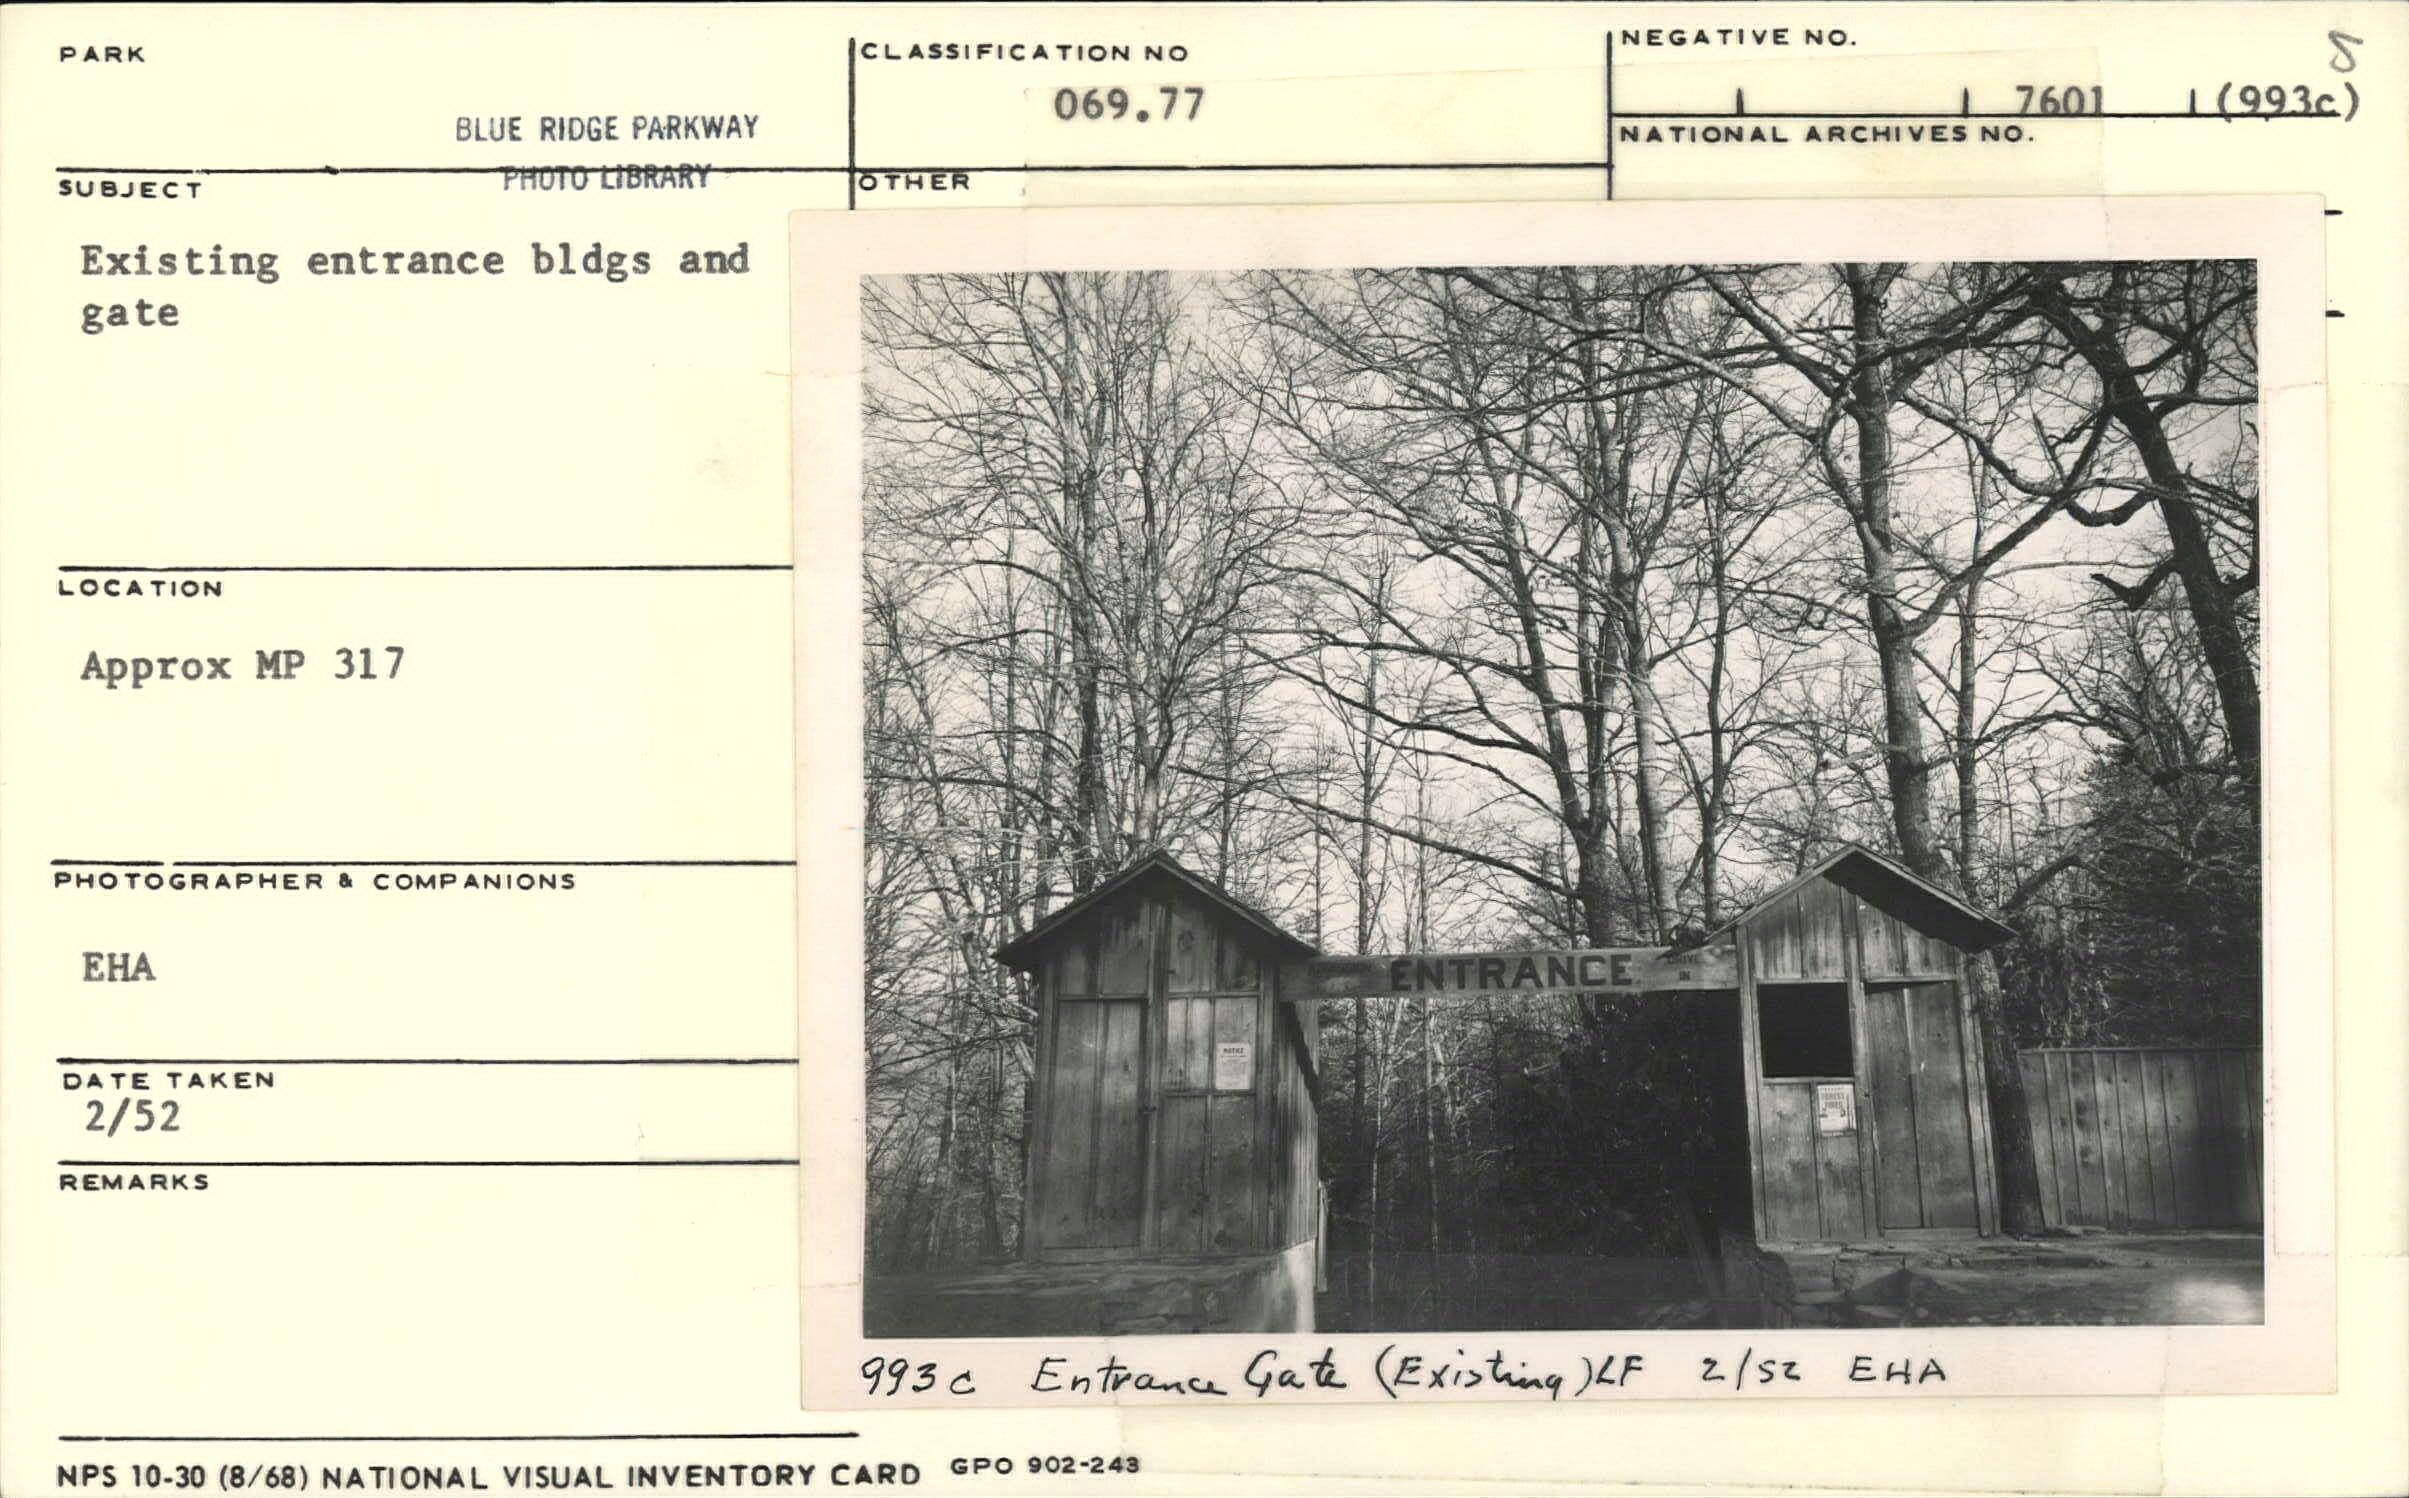 PARK
BLUE RIDGE PARKWAY
PHOTO LIBRARY
CLASSIFICATION NO
069.77
NEGATIVE NO.
7601 (993c)
NATIONAL ARCHIVES NO.
SUBJECT
Existing entrance bldgs and
gate
OTHER
LOCATION
Approx MP 317
PHOTOGRAPHER & COMPANIONS
EHA
DATE TAKEN
2/52
REMARKS
ENTRANCE
DRIVE
IN
NOTICE
FOREST
993c Entrance Gate (Existing) LF 2/52 EHA
NPS 10-30 (8/68) NATIONAL VISUAL INVENTORY CARD GPO 902-243